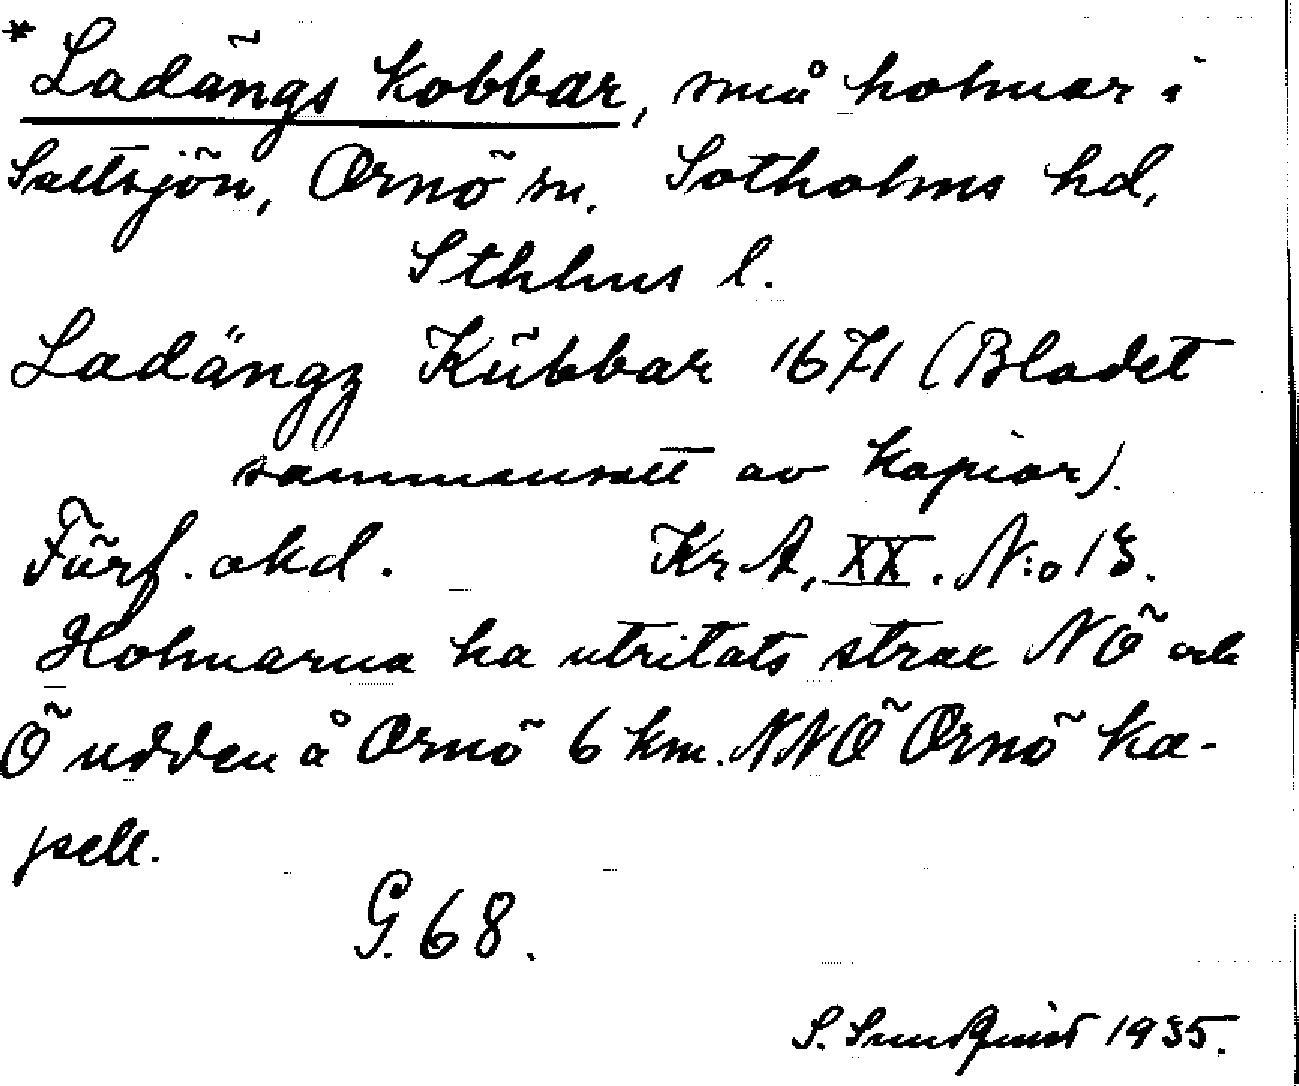 * Ladängs kobbar, små holmar i
Saltsjön, Ornö sn. Sotholms hd,
Sthlms l.
Ladängz Kübbar 1671 (Bladet
sammansatt av kopior).
Förf. okd. Kr A, XX. N:o 13.
Holmarna ha utritats strax NÖ och
Ö udden å Ornö 6 km. NNÖ Ornö ka-
pell.
G. 68.
S. Sundquist 1935.